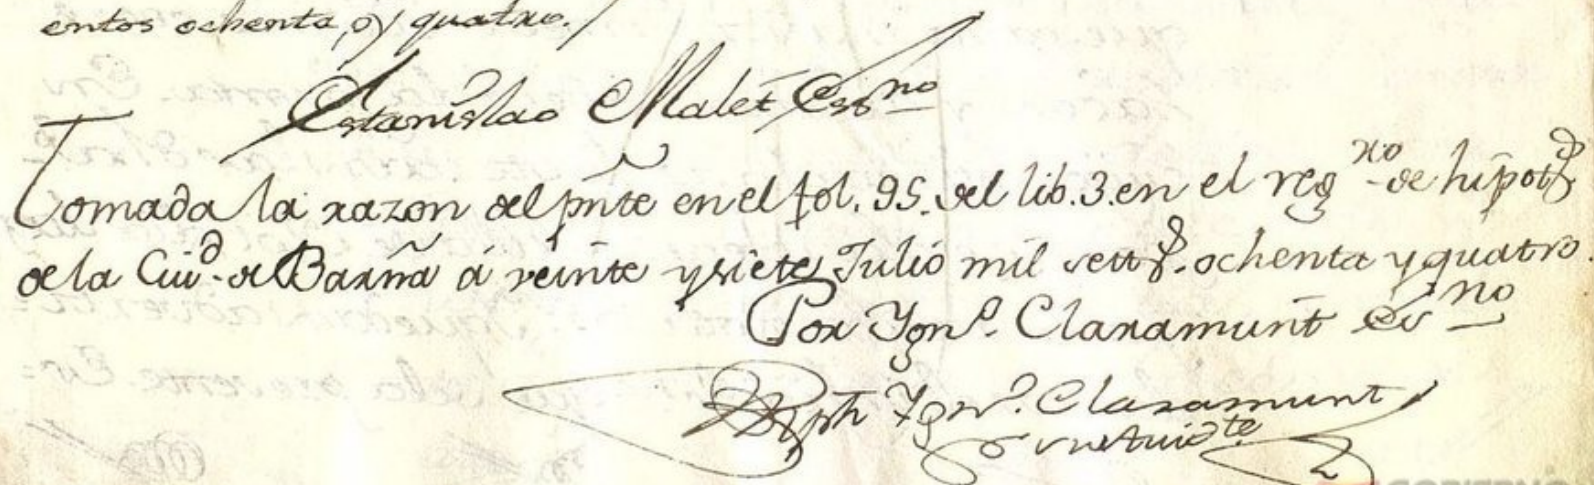 entos ochenta, y quatro.
Estanislao Malet Essno
Tomada la razon del pñte en el fol. 95. del lib. 3. en el regno de hipots
de la Ciud. de Barña á veinte y siete Julio mil setts. ochenta y quatro.
Por Ygno. Claramunt Esno
Jph Ygno. Claramunt
substituidte
GOBIERNO